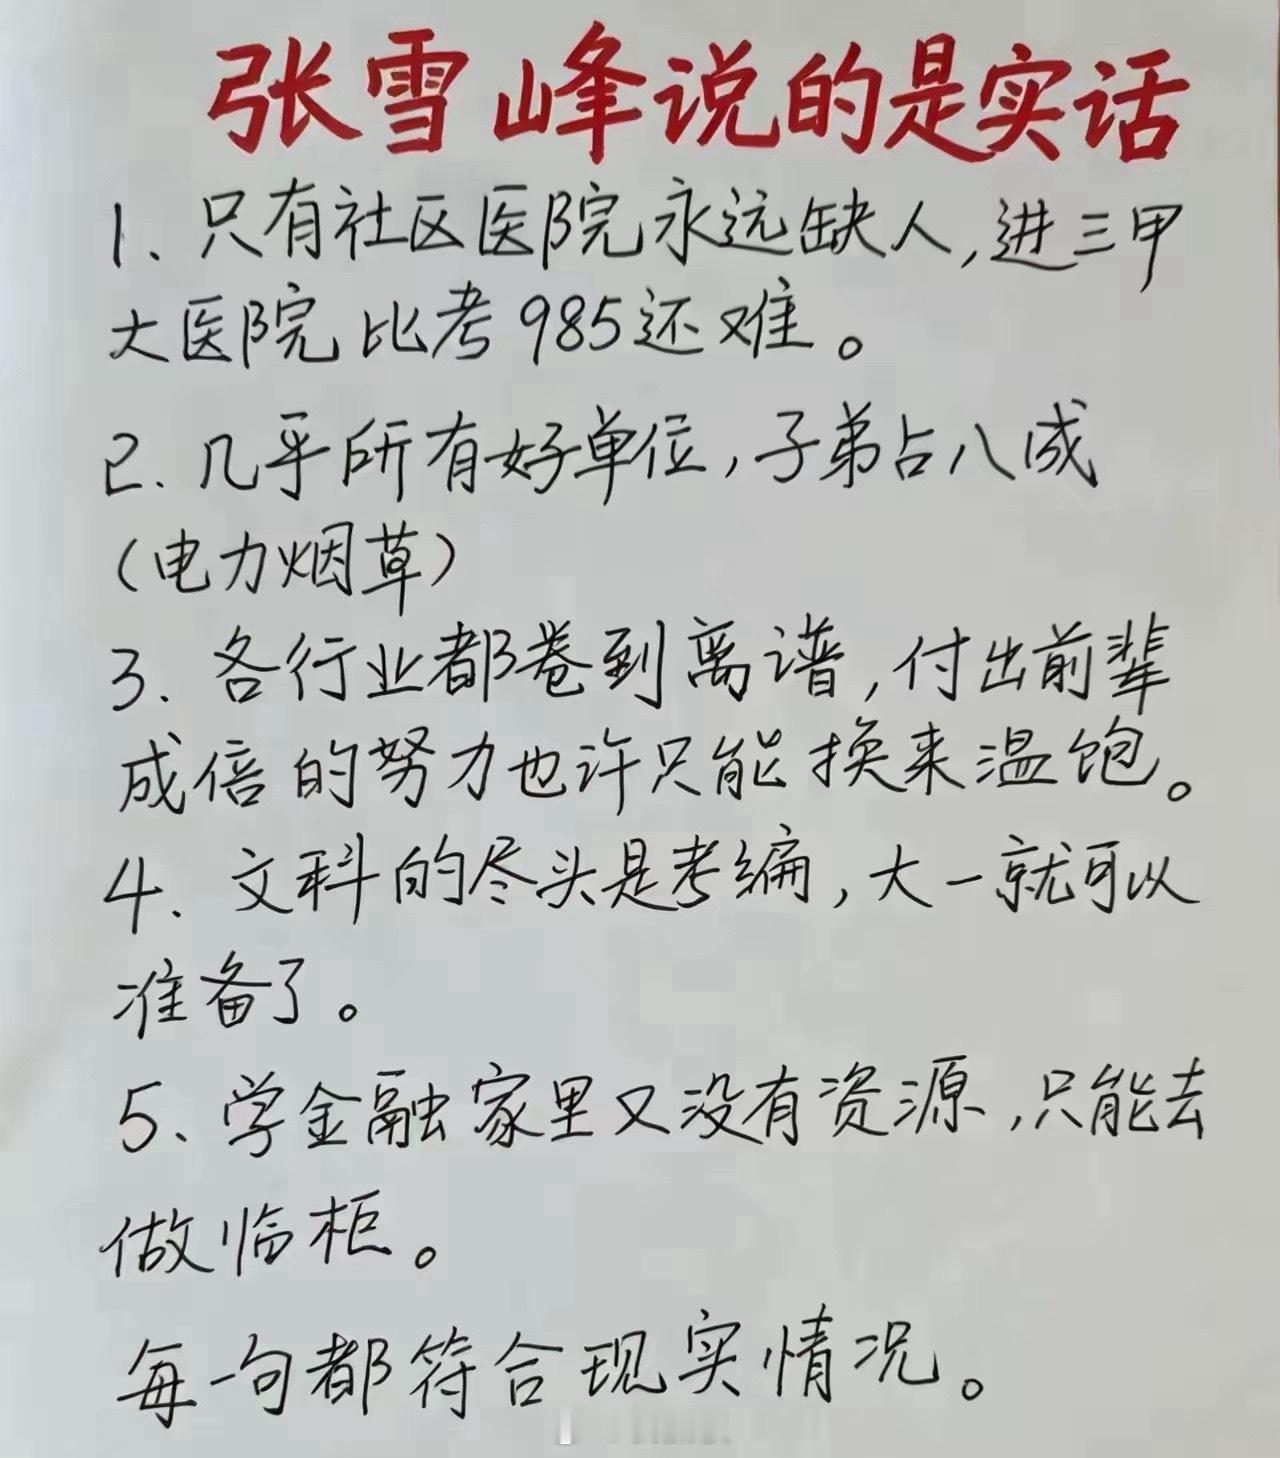 张雪峰说的是实话
1、只有社区医院永远缺人,进三甲
大医院比考985还难。
2、几乎所有好单位,子弟占八成
(电力烟草)
3、各行业都卷到离谱,付出前辈
成倍的努力也许只能换来温饱。
4、文科的尽头是考编,大一就可以
准备了。
5、学金融家里又没有资源,只能去
做临柜。
每一句都符合现实情况。